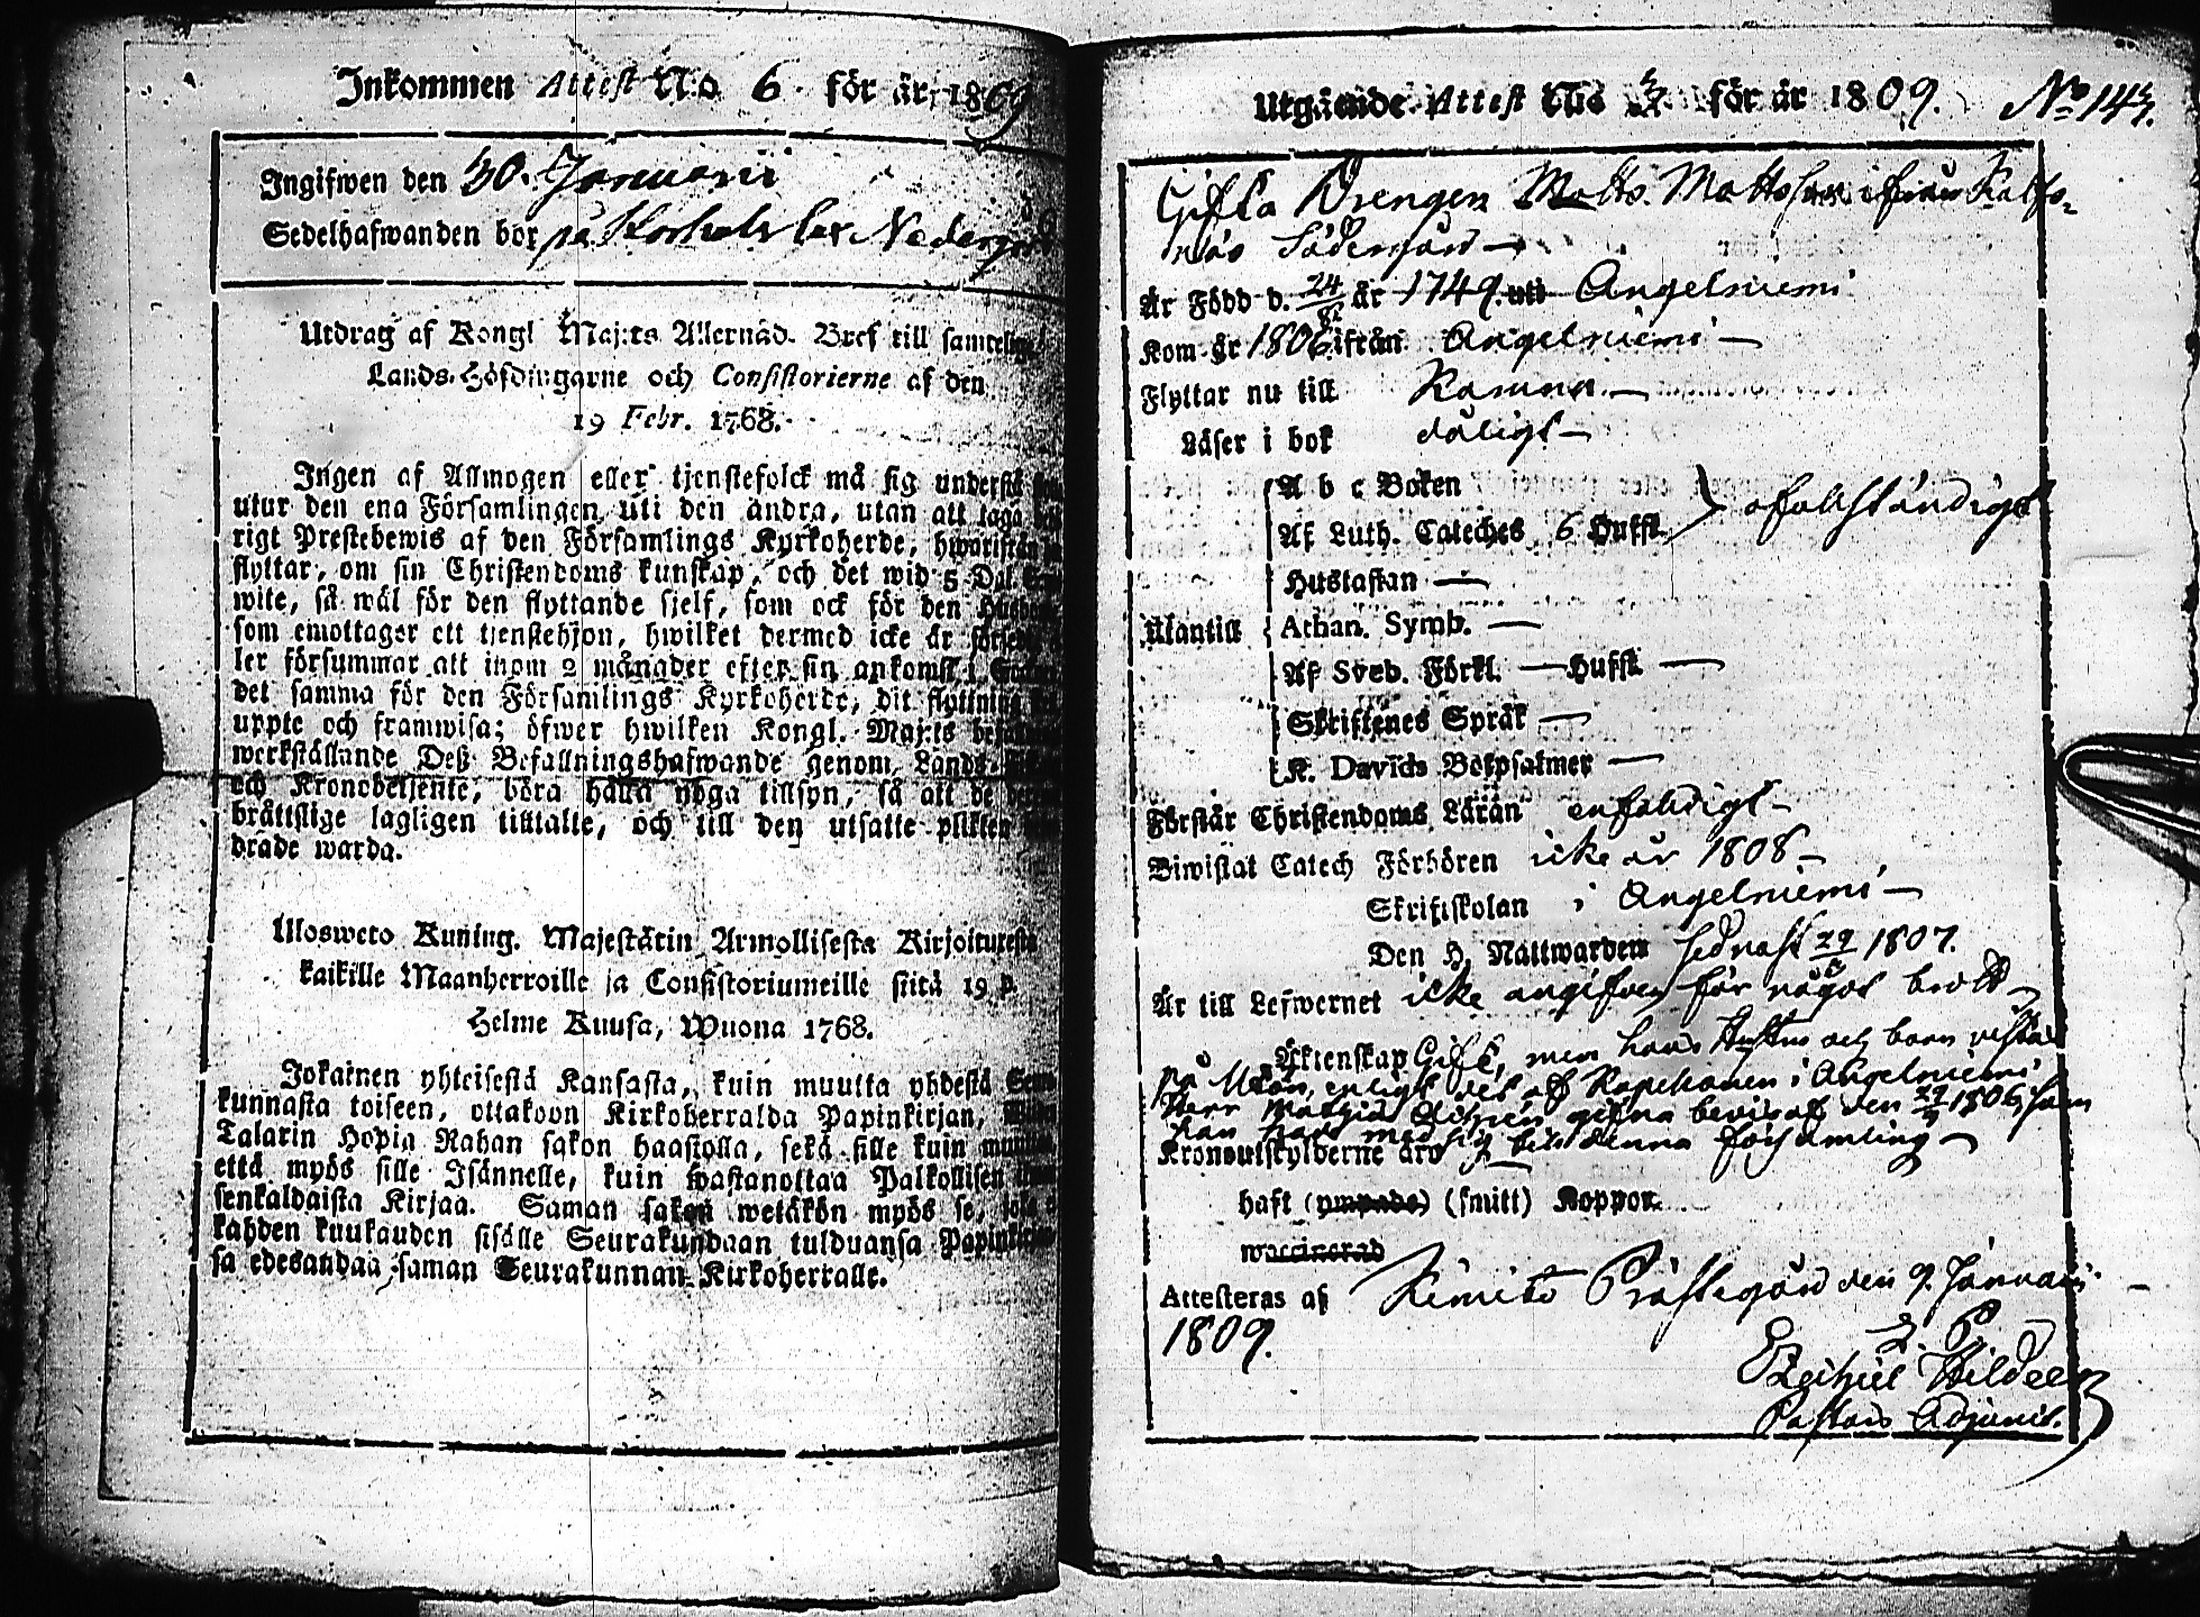 Inkommen Attest N:o 6. för år 1809
Ingifwen den 30. Januarii
Sedelhafwanden bor på Nedergård
Utdrag af Kongl Maj:ts Allernåd. Bref till samtelige
Lands-Höfdingarne och Consistorierne af den
19 Febr. 1768.
Ingen af Allmogen eller tjenstefolck må sig understå
utur den ena Församlingen uti den andra, utan att taga
rigt Prestebewis af den Församlings Kyrkoherde, hwarifrån
flyttar, om sin Christendoms kunskap, och det wid 5 Dal.
wite, så wäl för den flyttande sjelf, som ock för den
som emottager ett tjenstehjon, hwilket dermed icke är
ler försummar att inom 2 månader efter sin ankomst i
det samma för den Församlings Kyrkoherde, dit flyttning
uppte och framwisa; öfwer hwilken Kongl. Maj:ts
werkställande Deß Befallningshafwande genom Lands-
och Kronobetjente, böra hålla noga tillsyn, så att de
bråttslige lagligen tilltalte, och till den utsatte plikten
drade warda.
Ulosweto Kuning. Majestätin Armollisesta Kirjoituxesta
kaikille Maanherroille ja Consistoriumeille siitä 19 p.
Helme Kuusa, Wuona 1768.
Jokainen yhteisestä Kansasta, kuin muutta yhdestä Seura
kunnasta toiseen, ottakoon Kirkoherralda Papinkirjan,
Talarin Hopia Rahan sakon haastolla, sekä sille kuin muutta
että myös sille Isännelle, kuin wastanottaa Palkollisen
senkaldaista Kirjaa. Saman sakon wetäkön myös se,
kahden kuukauden sisälle Seurakundaan tulduansa Papinkirja
sa edesandaa saman Seurakunnan Kirkoherralle.
Utgående Attest N:o för år 1809. No 143.
Gifta Drengen Matts Mattsson ifrån
näs Södergård
År Född d. 24 år 1749 uti Angelniemi
Kom år 1806 ifrån Angelniemi
Flyttar nu till
Läser i bok dåligt
A b c Boken
Af Luth. Cateches 6 Hufst. ofullständigt
Hustaflan
Utantill Athan. Symb.
Af Sveb. Förkl. Hufst.
Skriftenes Språk
K. Davids Botpsalmer
Förstår Christendoms Läran enfaldigt
Biwistat Catech Förhören icke år 1808
Skriftskolan i Angelniemi
Den H. Nattwarden sednast 29 1807.
Är till Lefwernet icke angifven för något brott
Äktenskap Gift, men hans Hustru och barn vistas
på enligt det af Kapellanen i Angelniemi
Herr Mathias gifna bevis af den 29 1806, som
han med sig till denna församling
Kronoutskylderne äro
haft (ympade) (smitt) Koppor.
waccinerad
Attesteras af Kimito Prästegård den 9. Januarii
1809.
Ezechiel Hildeen
Pastors Adjunct.